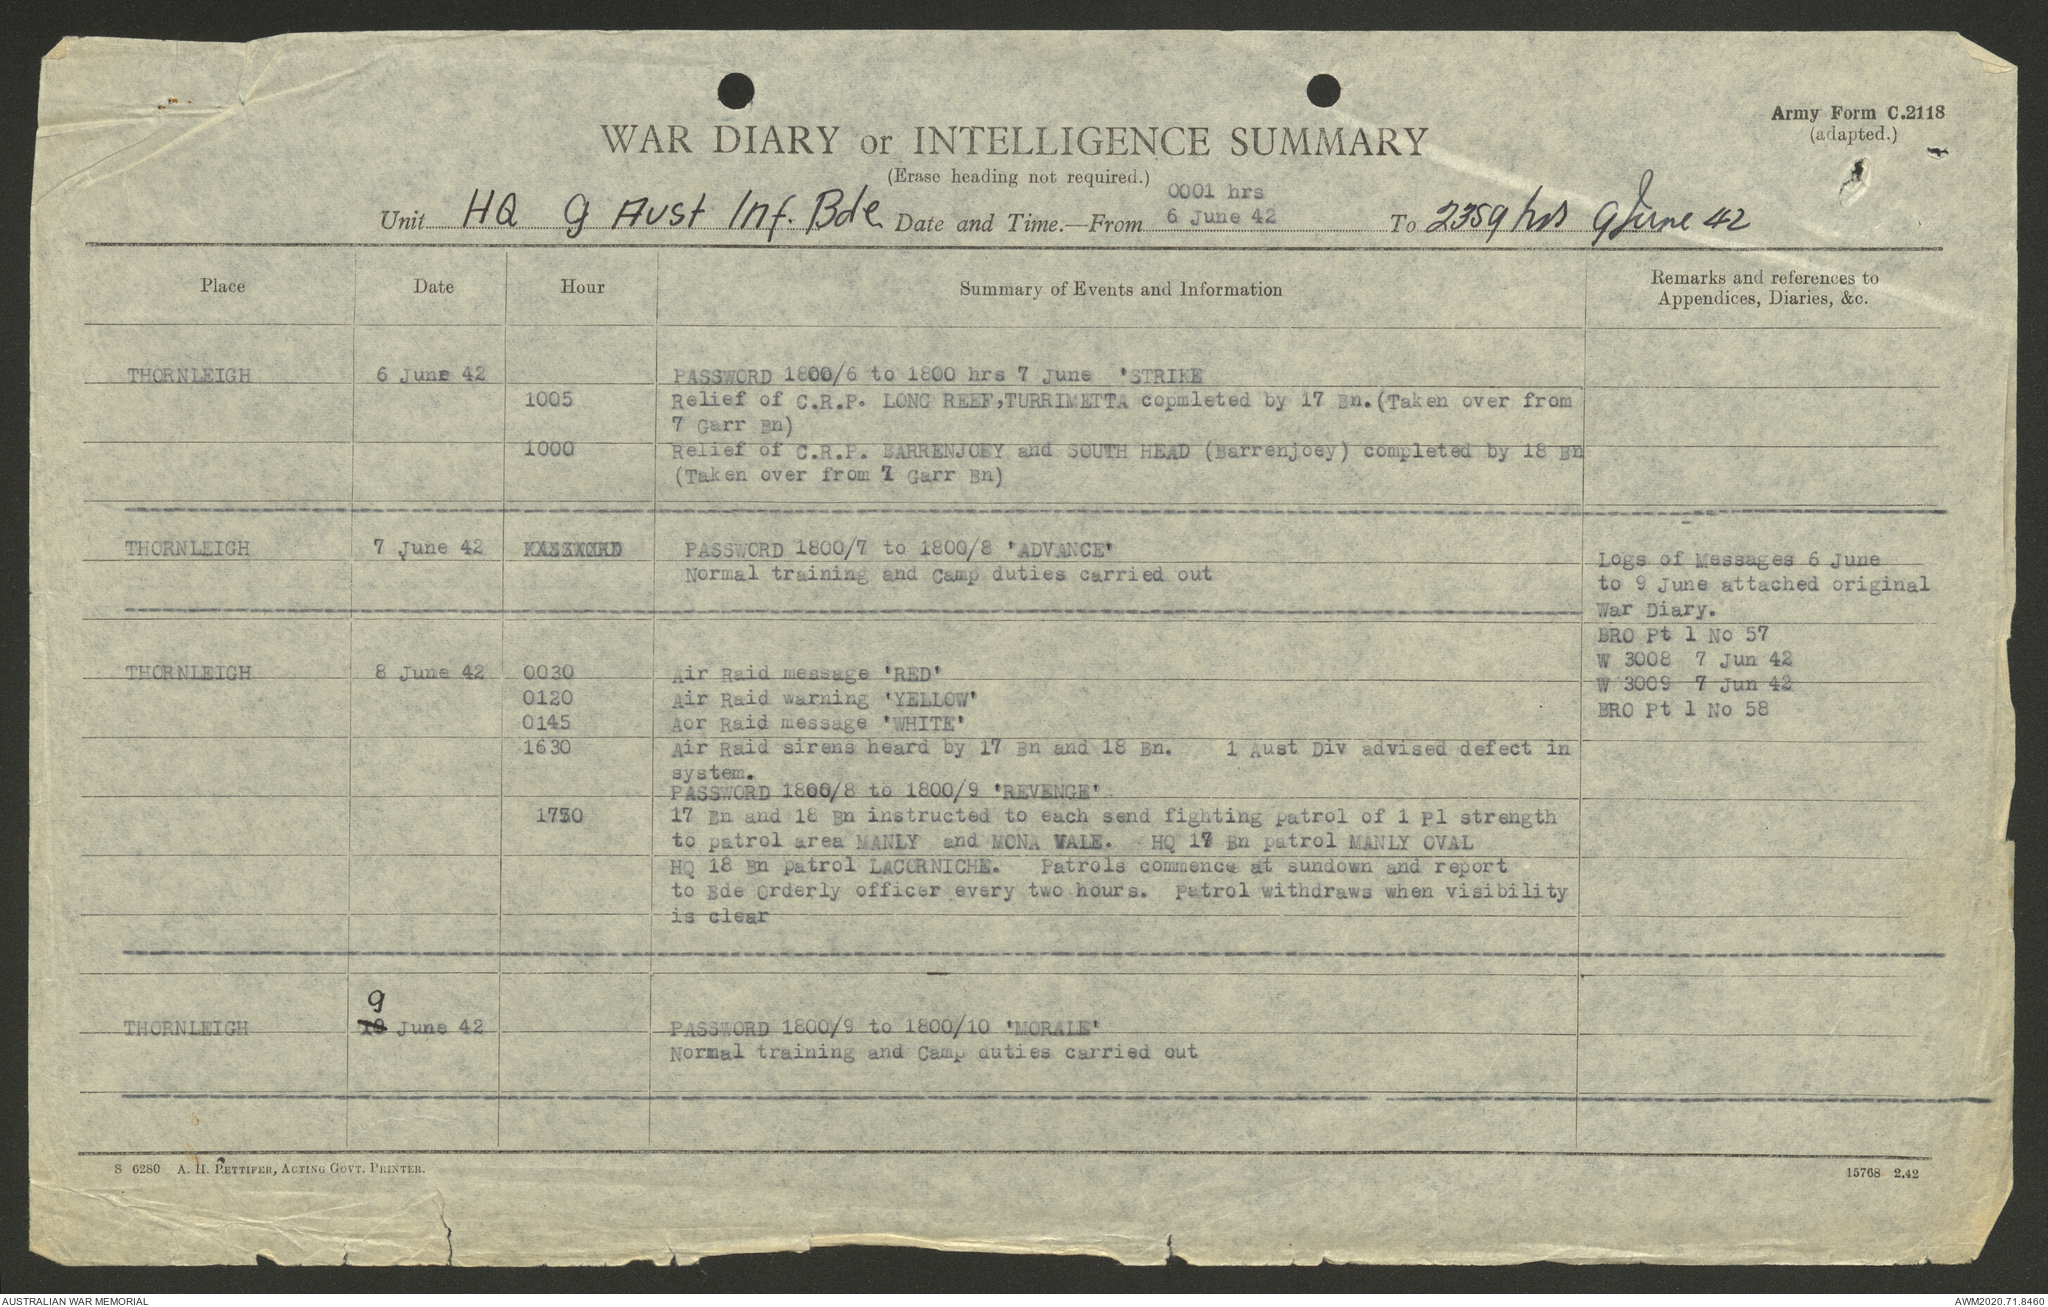 Army Form C.2118
(adapted.)
WAR DIARY or INTELLIGENCE SUMMARY
(Erase heading not required.)
Unit HQ 9 Aust Inf. Bde Date and Time.—From 0001 hrs 6 June 42 To 2359 hrs 9 June 42
Place Date Hour Summary of Events and Information Remarks and references to Appendices, Diaries, &c.
THORNLEIGH 6 June 42 PASSWORD 1800/6 to 1800 hrs 7 June 'STRIKE
1005 Relief of C.R.P. LONG REEF,TURRIMETTA copmleted by 17 Bn.(Taken over from
7 Garr Bn)
1000 Relief of C.R.P. BARRENJOEY and SOUTH HEAD (Barrenjoey) completed by 18 Bn
(Taken over from 7 Garr Bn)
THORNLEIGH 7 June 42 PASSWORD 1800/7 to 1800/8 'ADVANCE'
Normal training and Camp duties carried out
Logs of Messages 6 June
to 9 June attached original
War Diary.
BRO Pt 1 No 57
W 3008 7 Jun 42
W 3009 7 Jun 42
BRO Pt 1 No 58
THORNLEIGH 8 June 42 0030 Air Raid message 'RED'
0120 Air Raid warning 'YELLOW'
0145 Aor Raid message 'WHITE'
1630 Air Raid sirens heard by 17 Bn and 18 Bn. 1 Aust Div advised defect in
system.
PASSWORD 1800/8 to 1800/9 'REVENGE'
1730 17 Bn and 18 Bn instructed to each send fighting patrol of 1 Pl strength
to patrol area MANLY and MONA VALE. HQ 17 Bn patrol MANLY OVAL
HQ 18 Bn patrol LACORNICHE. Patrols commence at sundown and report
to Bde Orderly officer every two hours. Patrol withdraws when visibility
is clear
9
THORNLEIGH 10 June 42 PASSWORD 1800/9 to 1800/10 'MORALE'
Normal training and Camp duties carried out
S 6280 A. H. PETTIFER, ACTING GOVT. PRINTER.
15768 2.42
AUSTRALIAN WAR MEMORIAL
AWM2020.71.8460